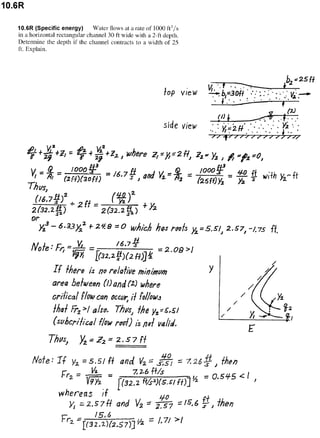 10.6R
10.6R (Specific energy) Water flows at a rate of 1000 ft³/s
in a horizontal rectangular channel 30 ft wide with a 2-ft depth.
Determine the depth if the channel contracts to a width of 25
ft. Explain.
b₂=25ft
top view V₁ b₁=30ft V₂
(1) (2)
side view y₁=2ft y₂
p₁/γ + V₁²/2g + z₁ = p₂/γ + V₂²/2g + z₂, where z₁=y₁=2ft, z₂=y₂, p₁=p₂=0,
V₁ = Q/A₁ = 1000 ft³/s / (2ft)(30ft) = 16.7 ft/s, and V₂ = Q/A₂ = 1000 ft³/s / (25ft)y₂ = 40/y₂ ft/s with y₂~ft
Thus,
(16.7 ft/s)² / 2(32.2 ft/s²) + 2 ft = (40/y₂)² / 2(32.2 ft/s²) + y₂
or
y₂³ - 6.33y₂² + 24.8 = 0 which has roots y₂=5.51, 2.57, -1.75 ft.
Note: Fr₁ = V₁/√gy₁ = 16.7 ft/s / [(32.2 ft/s²)(2ft)]^½ = 2.08 > 1
If there is no relative minimum
area between (1) and (2) where
critical flow can occur, it follows
that Fr₂>1 also. Thus, the y₂=5.51
(subcritical flow root) is not valid.
y
y₂
y₁
q₂
q₁
E
Thus, y₂ = z₂ = 2.57 ft
Note: If y₂ = 5.51 ft and V₂ = 40/5.51 = 7.26 ft/s, then
Fr₂ = V₂/√gy₂ = 7.26 ft/s / [(32.2 ft/s²)(5.51 ft)]^½ = 0.545 < 1,
whereas if
y₂ = 2.57 ft and V₂ = 40/2.57 = 15.6 ft/s, then
Fr₂ = 15.6 / [(32.2)(2.57)]^½ = 1.71 > 1